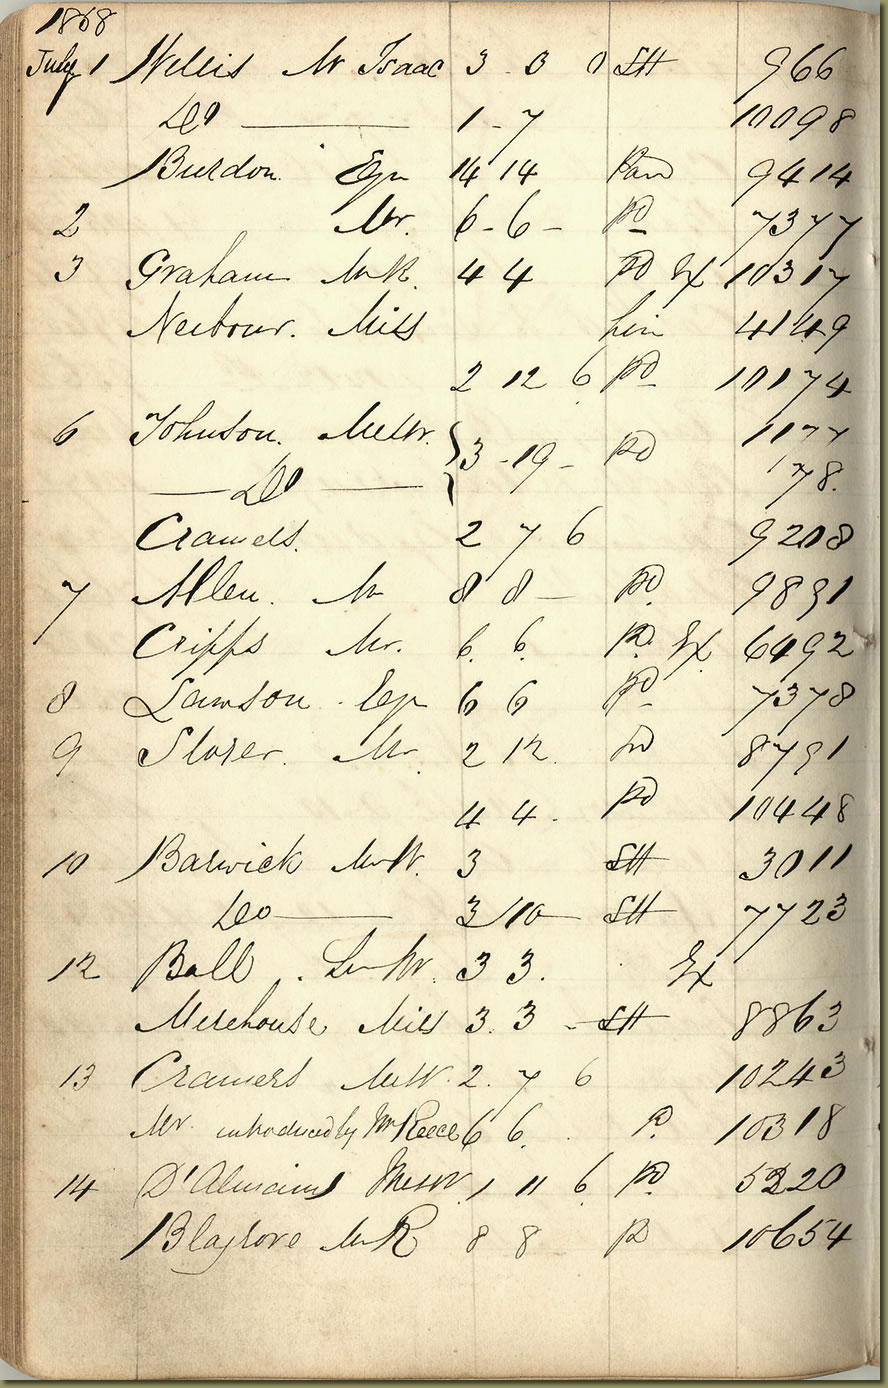 1868
July 1 Willis Mr Isaac 3 . 0 0 SH 966
Do 1 - 7 10098
Burdon Esq 14 14 Paid 9414
2 Mr. 6 - 6 - PD 7377
3 Graham Mr R. 4 4 PD Ex 10317
Neibour. Miss 4149
2 12 6 PD 10174
6 Johnson. Messrs. 3 - 19 - PD 1177
Do 178.
Cramers. 2 7 6 9208
7 Allen. Mr 8 8 - PD 9891
Cripps Mr. 6. 6. PD. Ex 6492
8 Lawson . Esq 6 6 PD 7378
9 Storer. Mr. 2 12. PD 8791
4 4 . PD 10448
10 Barwick Mr W. 3 SH 3011
Do 3/10 SH 7723
12 Ball . 3 3. Ex
Merehouse Miss 3. 3 - SH 8863
13 Cramers Messrs. 2. 7 6 10243
Mr. introduced by Mr Reece 6 6. . P. 10318
14 D'Almaine Messrs. 1 11 6 PD 5220
Blagrove Mr R 8 8 P 10654